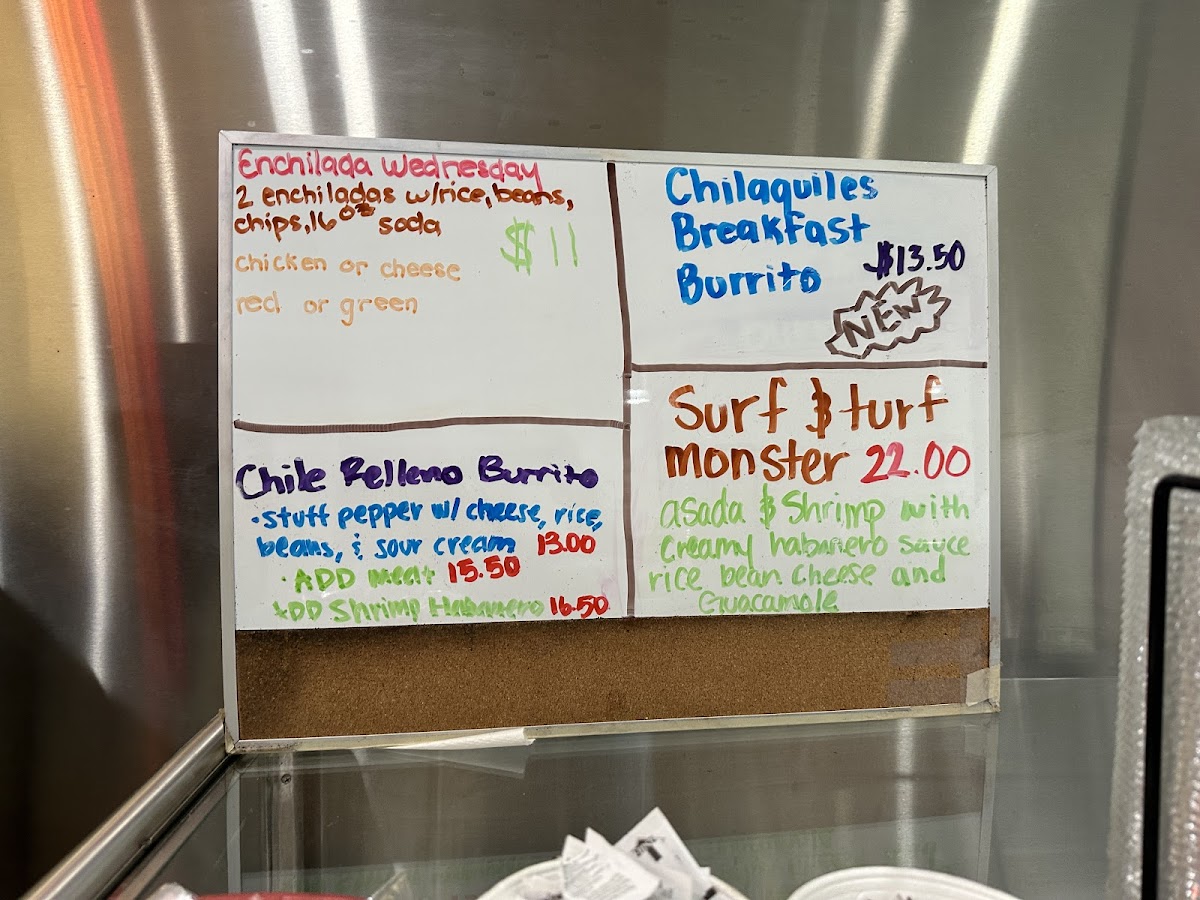 Enchilada Wednesday
2 enchiladas w/rice, beans,
chips, 16 oz soda
$11
chicken or cheese
red or green
Chilaquiles
Breakfast
Burrito
$13.50
NEW
Chile Relleno Burrito
·stuff pepper w/ cheese, rice,
beans, & sour cream 13.00
·ADD meat 15.50
ADD Shrimp Habanero 16.50
Surf & turf
monster 22.00
asada & Shrimp with
creamy habanero sauce
rice bean cheese and
Guacamole